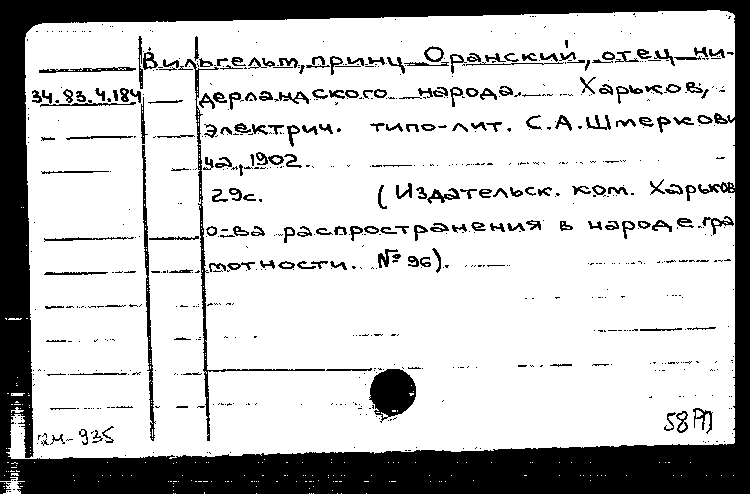 Вильгельм, принц Оранский, отец ни-
34.83.4.184 дерландского народа. Харьков,
электрич. типо-лит. С.А.Шмеркови
ча, 1902
29с. (Издательск. ком. Харьков
о-ва распространения в народе гра
мотности. № 96).
58